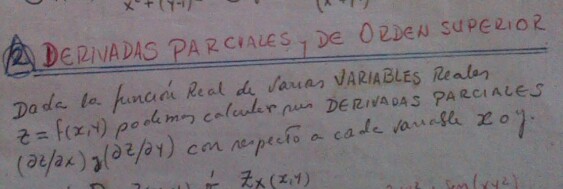 x² + (y-1)²
② DERIVADAS PARCIALES, Y DE ORDEN SUPERIOR
Dada la función Real de varias VARIABLES Reales
z = f(x,y) podemos calcular sus DERIVADAS PARCIALES
(∂z/∂x) y (∂z/∂y) con respecto a cada variable x o y.
Zx(x,y)